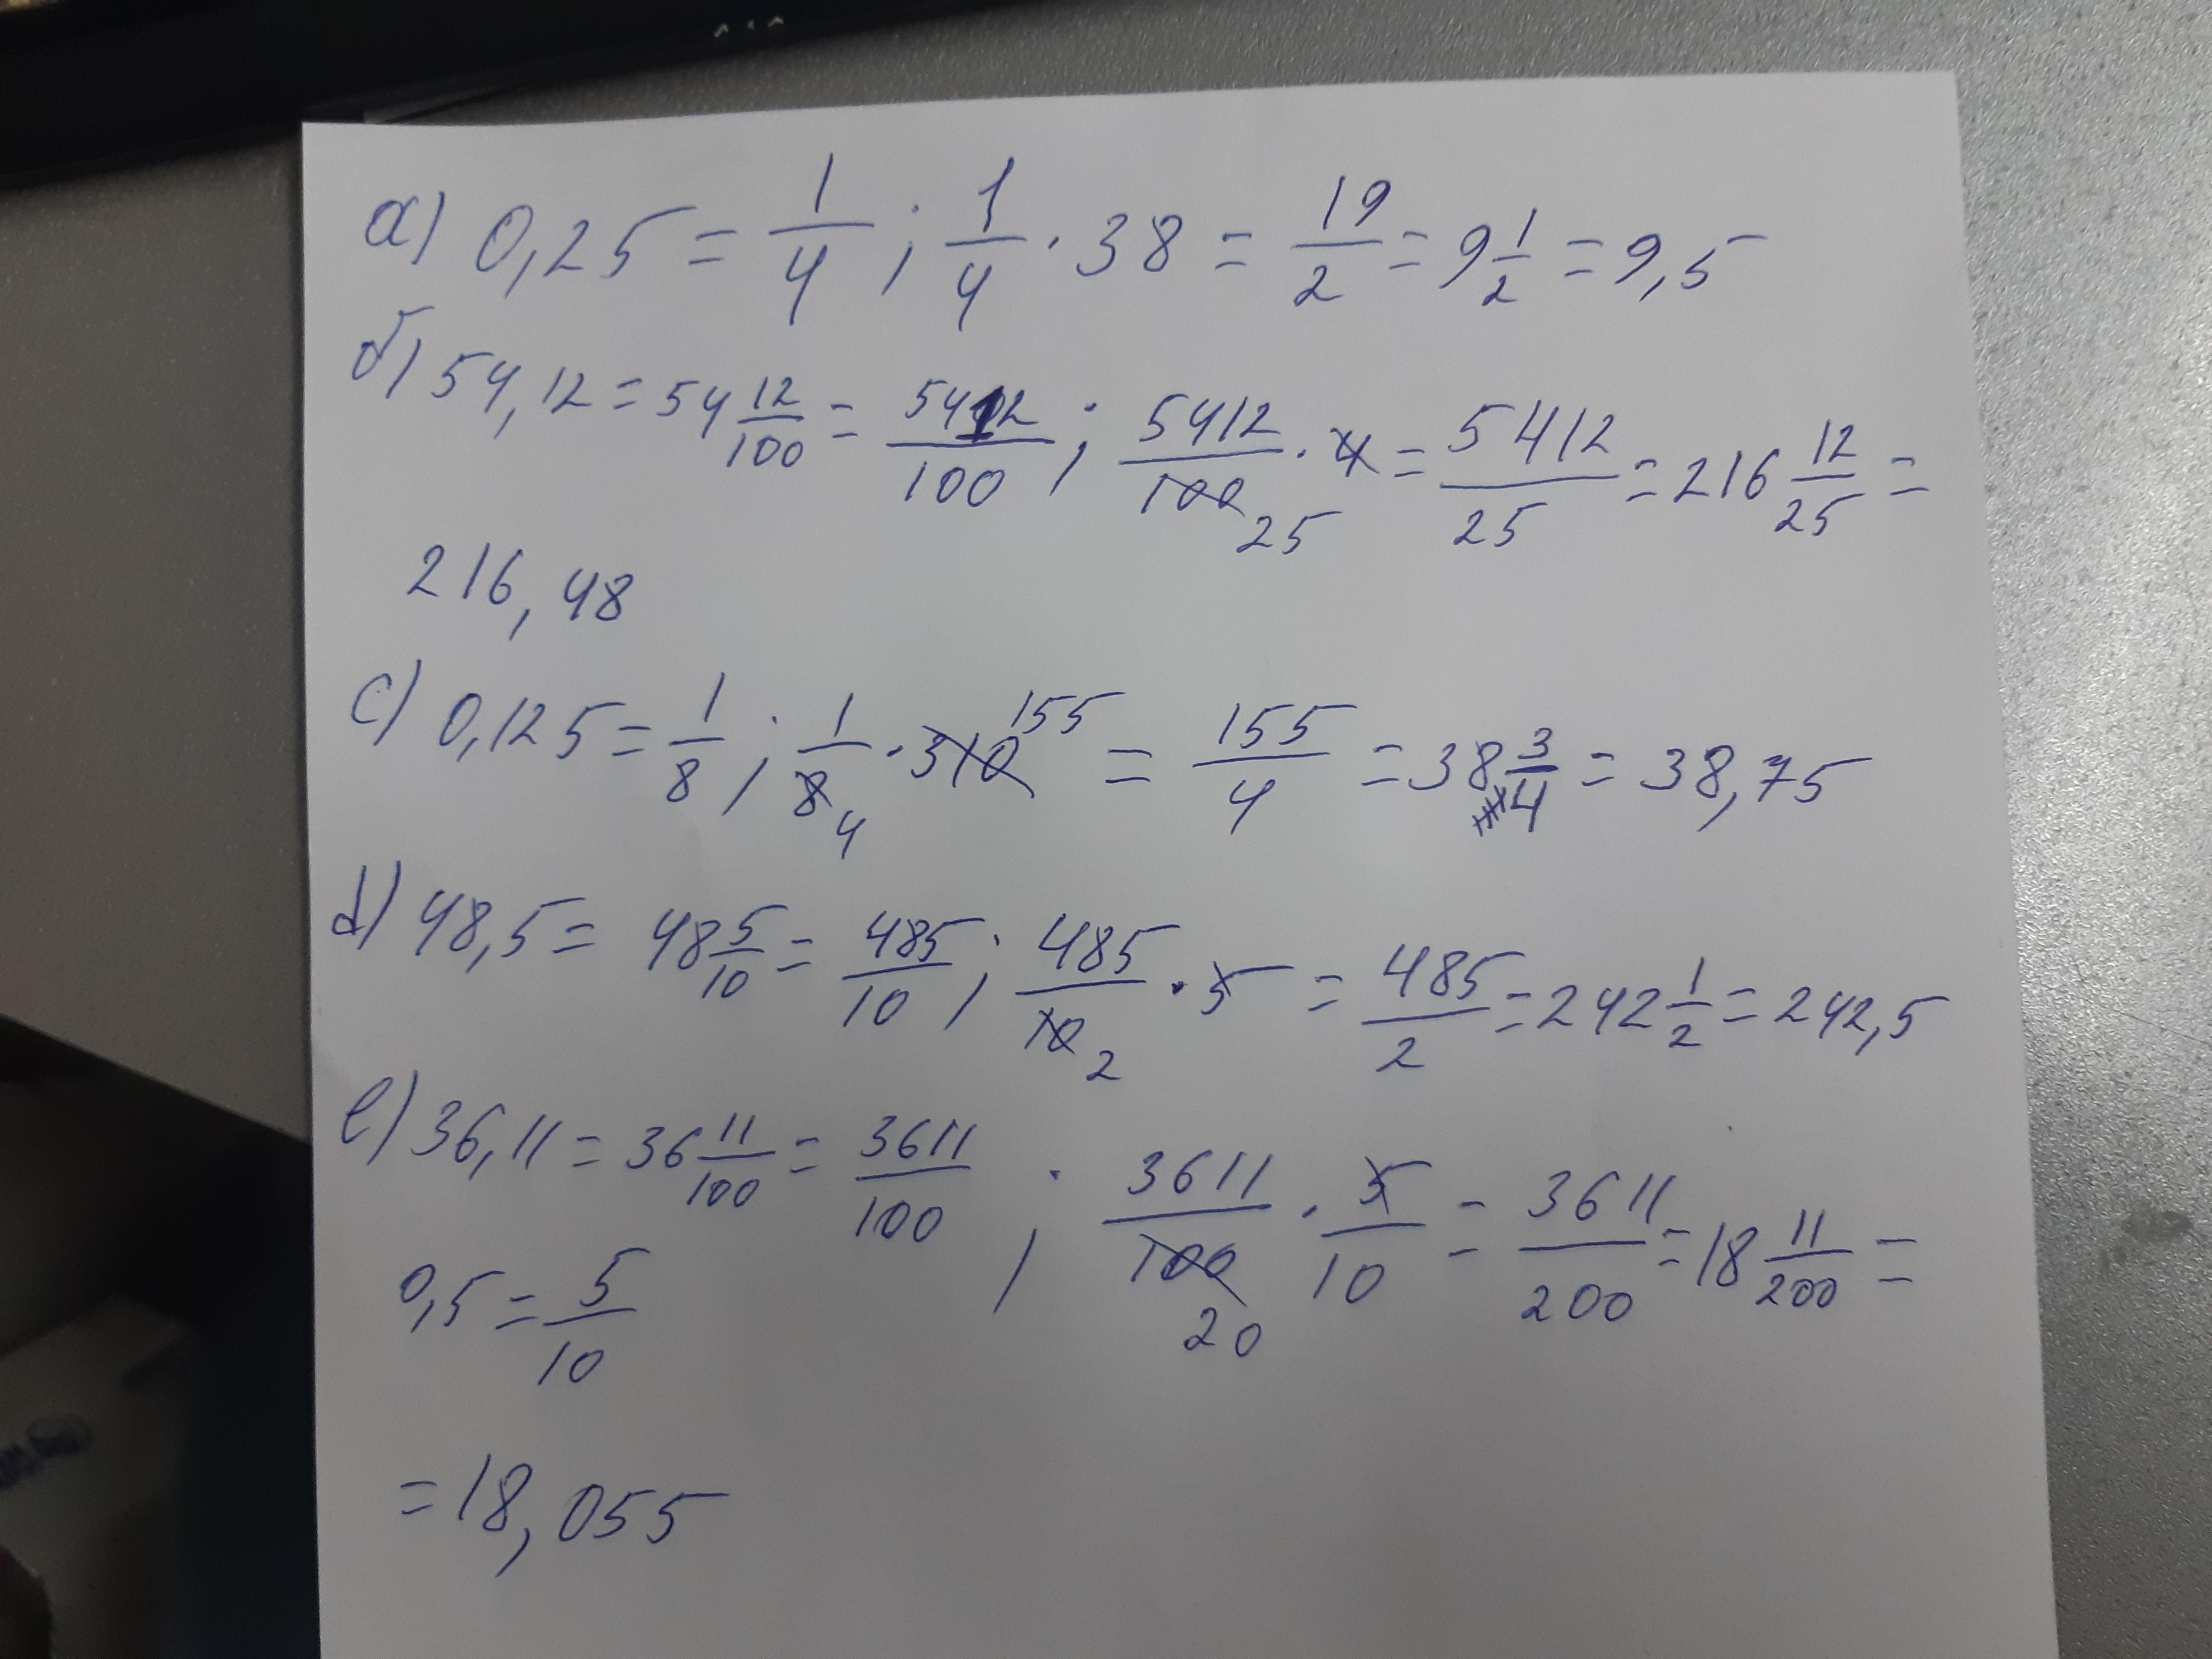 а) 0,25 = 1/4 ; 1/4 · 38 = 19/2 = 9 1/2 = 9,5
б) 54,12 = 54 12/100 = 5412/100 ; 5412/100 25 · 4 = 5412/25 = 216 12/25 =
216,48
c) 0,125 = 1/8 ; 1/8 4 · 310 155 = 155/4 = 38 3/4 = 38,75
d) 48,5 = 48 5/10 = 485/10 ; 485/10 2 · 5 = 485/2 = 242 1/2 = 242,5
e) 36,11 = 36 11/100 = 3611/100 ; 3611/100 20 · 5/10 = 3611/200 = 18 11/200 =
0,5 = 5/10
= 18,055